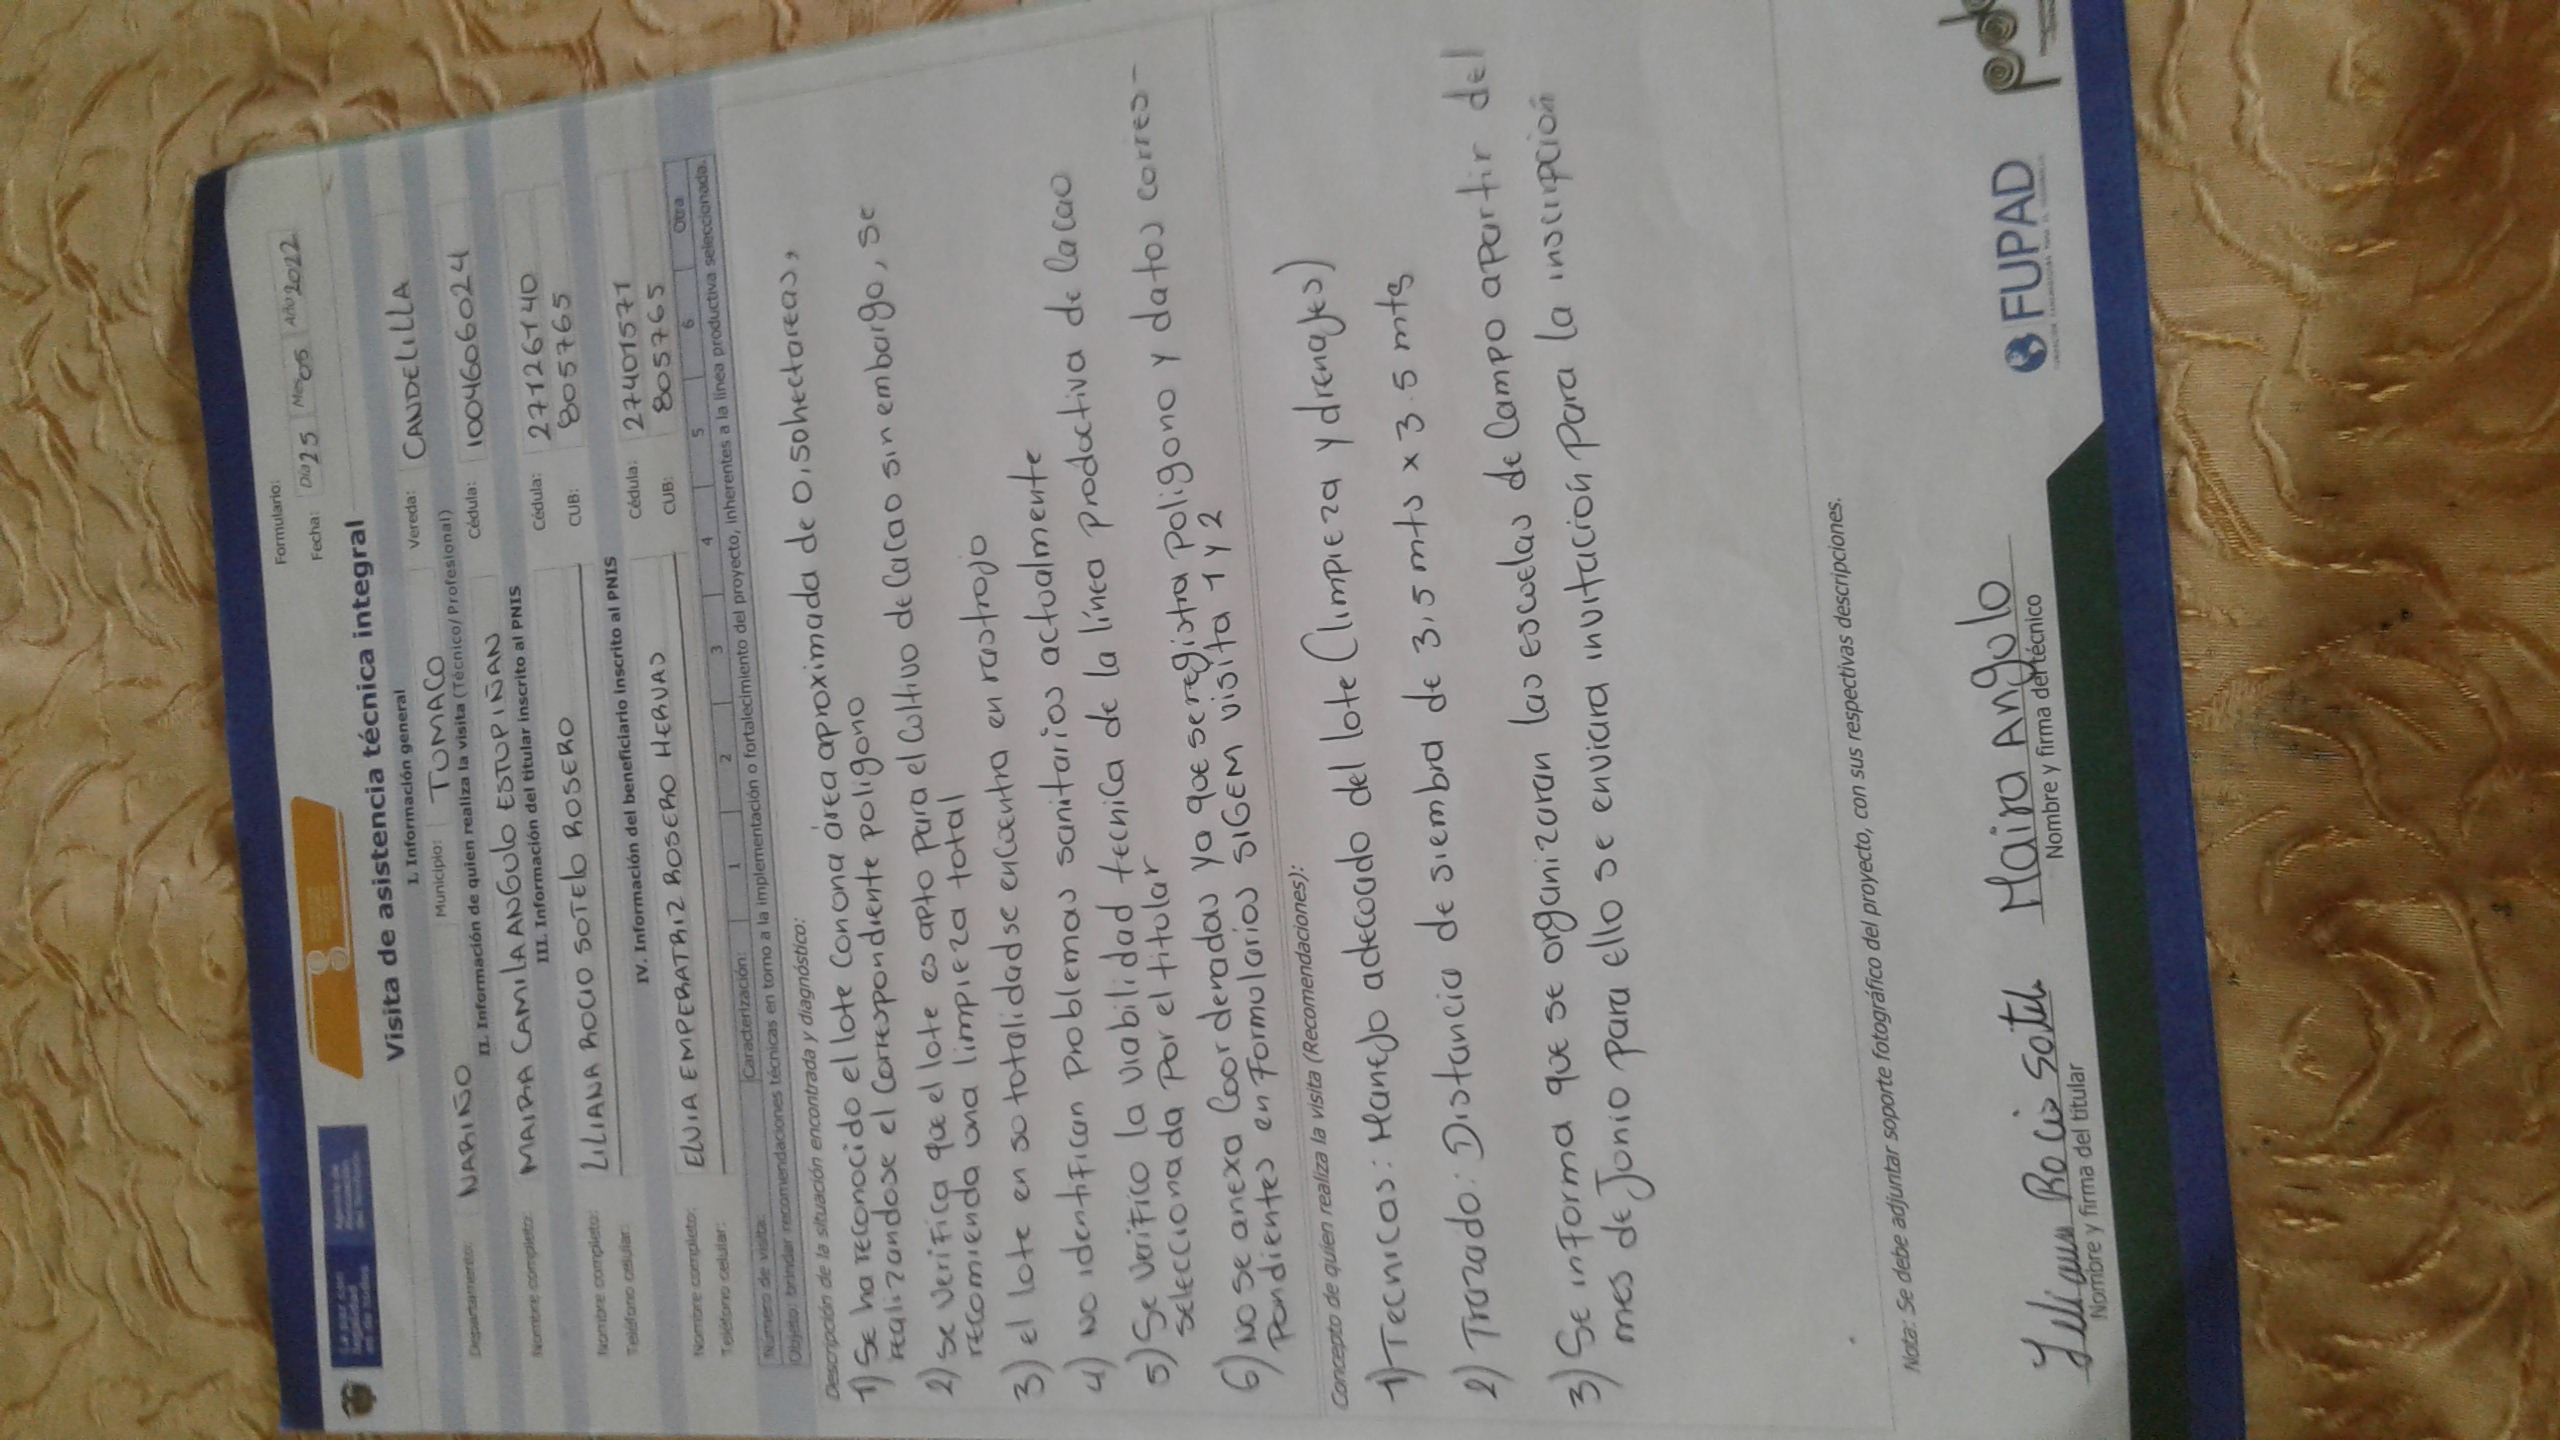 La paz con
legalidad
es de todos
Agencia de
Renovación
del Territorio
Formulario:
Fecha: Día 25 Mes 05 Año 2022
Visita de asistencia técnica integral
I. Información general
Departamento: NARIÑO Municipio: TUMACO Vereda: CANDELILLA
II. Información de quien realiza la visita (Técnico/Profesional)
Nombre completo: MAIRA CAMILA ANGULO ESTUPIÑAN Cédula: 1004606024
III. Información del titular inscrito al PNIS
Nombre completo: LILIANA ROCIO SOTELO ROSERO Cédula: 27126140
Teléfono celular: CUB: 805765
IV. Información del beneficiario inscrito al PNIS
Nombre completo: ELVIA EMPERATRIZ ROSERO HERVAS Cédula: 27401571
Teléfono celular: CUB: 805765
Número de visita: Caracterización: 1 2 3 4 5 6 Otra
Objeto: brindar recomendaciones técnicas en torno a la implementación o fortalecimiento del proyecto, inherentes a la línea productiva seleccionada.
Descripción de la situación encontrada y diagnóstico:
1) Se ha reconocido el lote con una área aproximada de 0,50 hectareas,
realizandose el correspondiente poligono
2) se verifica que el lote es apto para el cultivo de cacao sin embargo, se
recomienda una limpieza total
3) el lote en su totalidad se encuentra en rastrojo
4) No identifican problemas sanitarios actualmente
5) Se verifico la viabilidad tecnica de la línea productiva de Cacao
seleccionada por el titular
6) No se anexa Coordenadas ya que se registra poligono y datos corres-
pondientes en Formularios SIGEM visita 1 y 2
Concepto de quien realiza la visita (Recomendaciones):
1) Tecnicas: Manejo adecuado del lote (limpieza y drenajes)
2) Trazado: Distancia de siembra de 3,5 mts x 3.5 mts
3) Se informa que se organizaran las escuelas de Campo apartir del
mes de Junio para ello se enviara invitación para la inscripción
Nota: Se debe adjuntar soporte fotográfico del proyecto, con sus respectivas descripciones.
Liliana Rocio Sotelo Maira Angulo
Nombre y firma del titular Nombre y firma del técnico
FUPAD